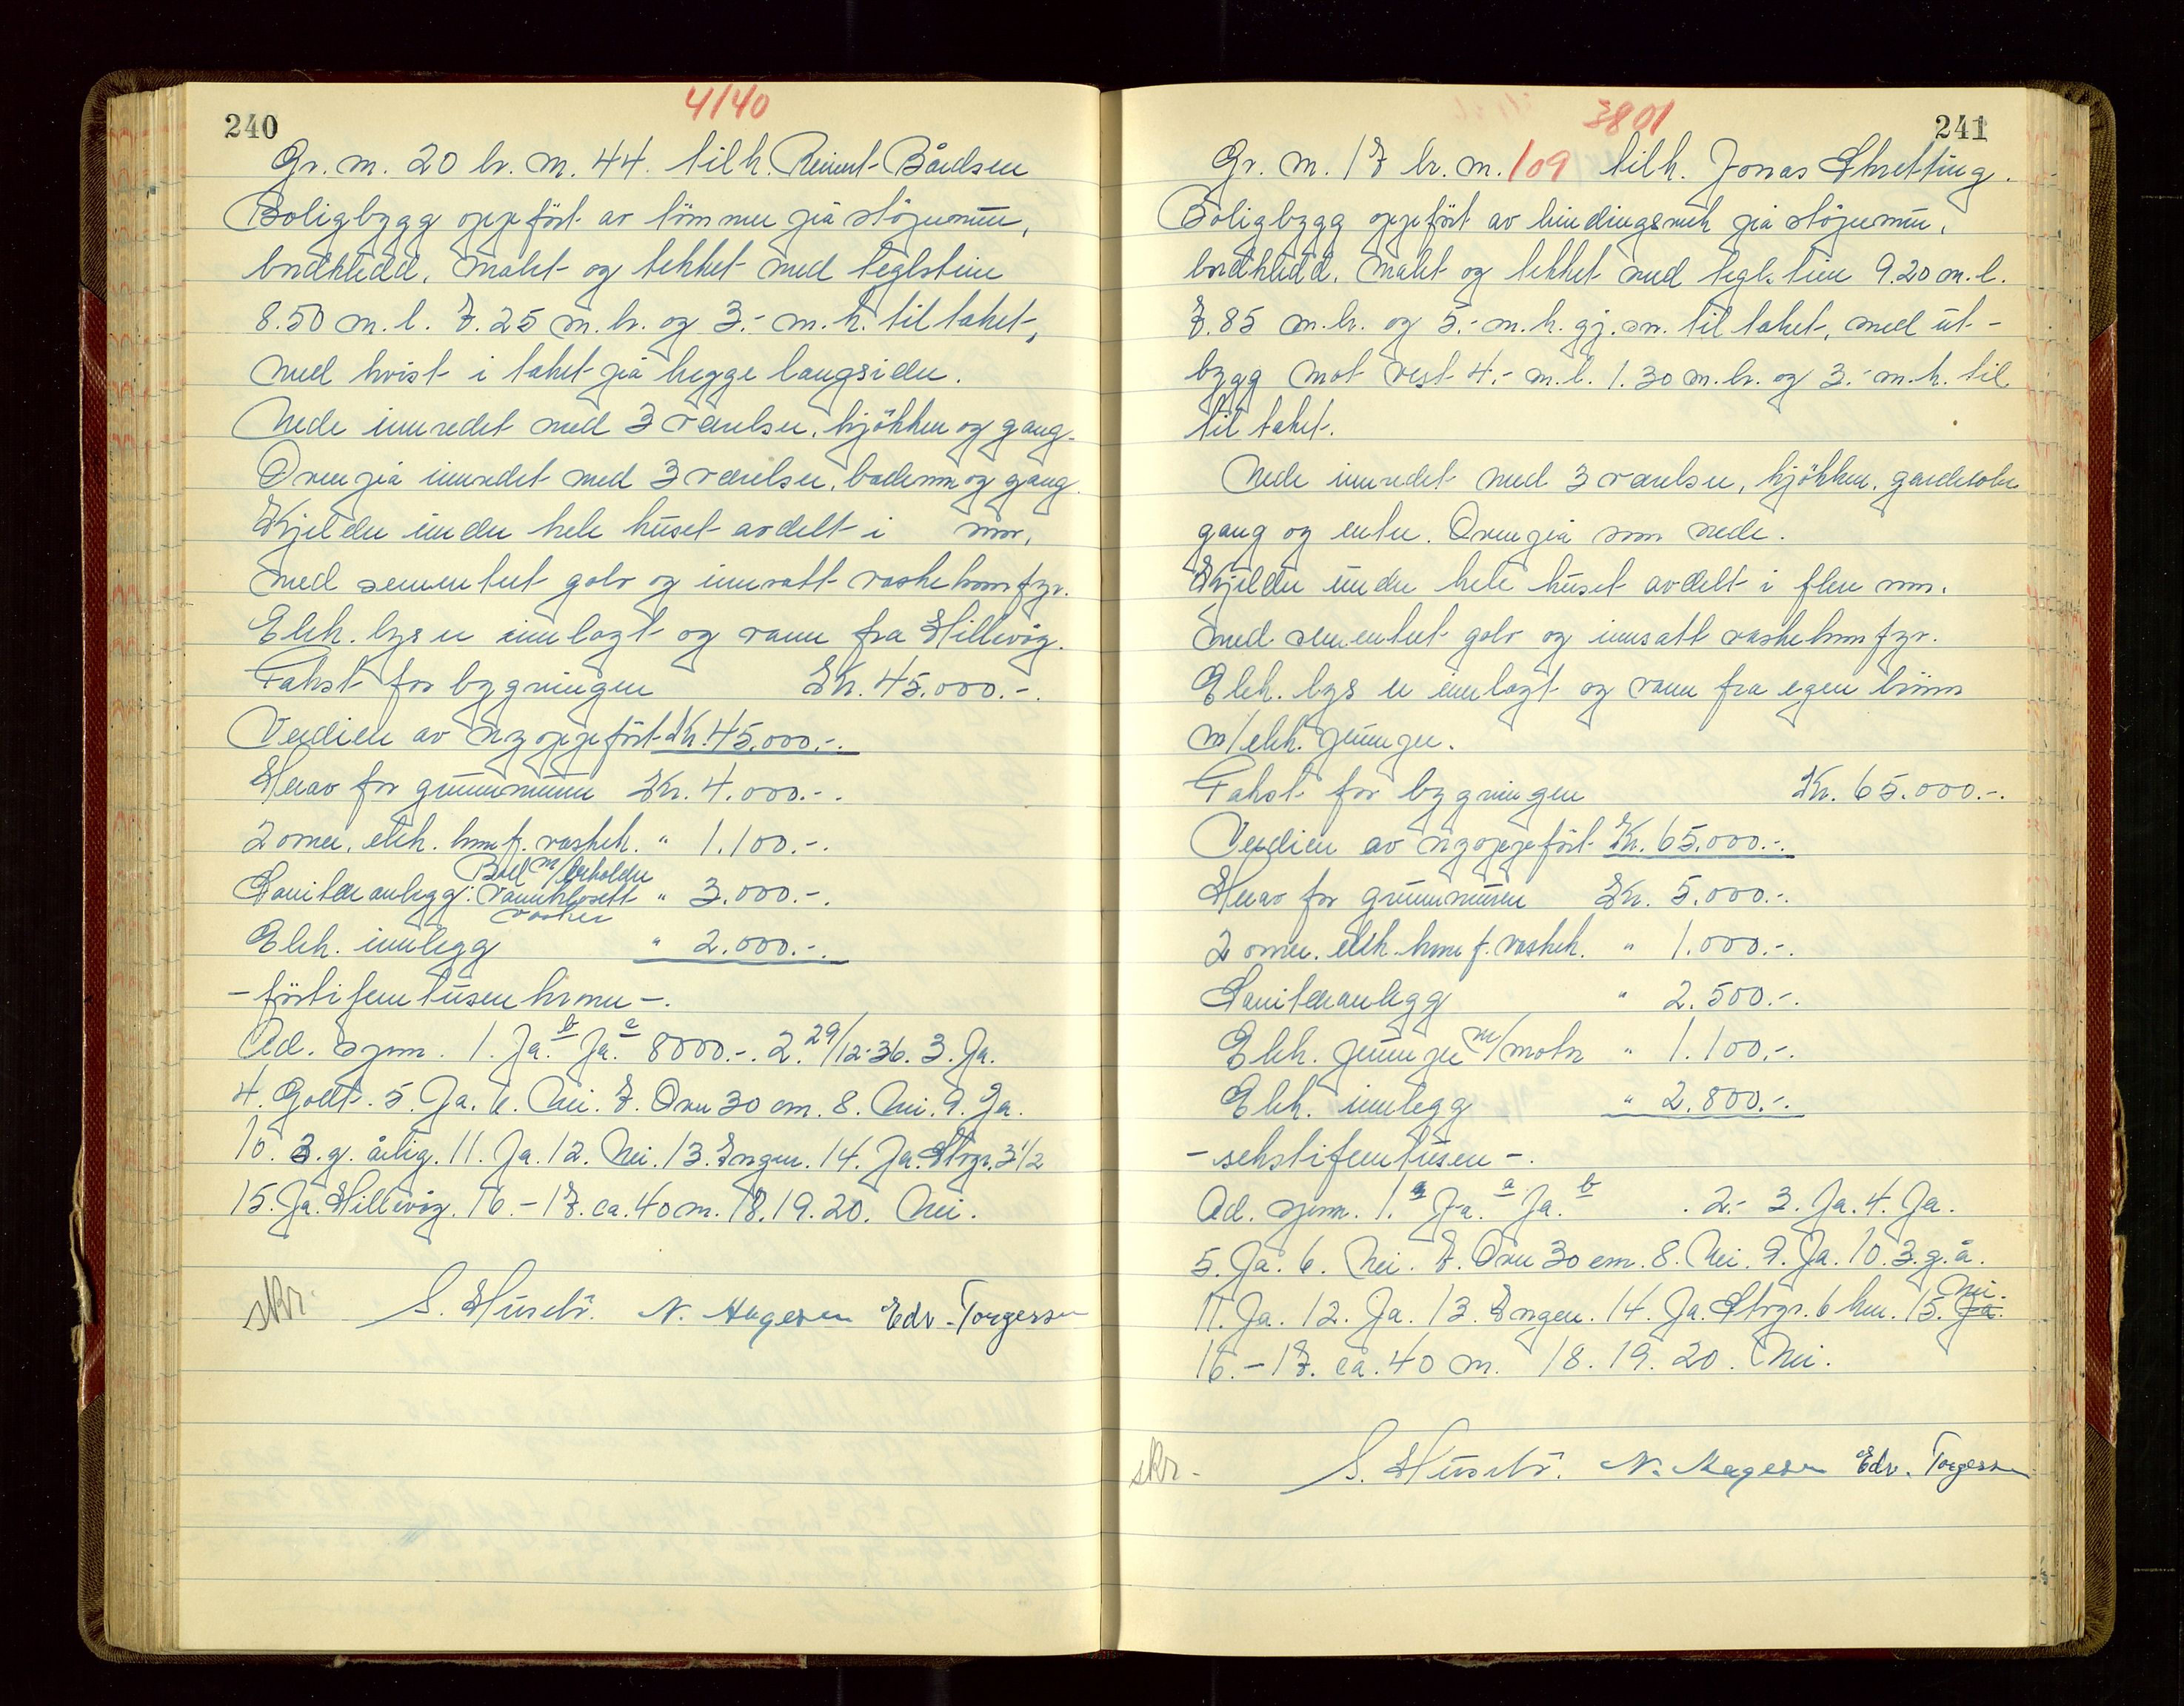 240
4140
Gr. nr. 20 br. nr. 44. tilh. Reinert Bårdsen
Boligbygg oppført av tømmer på støpemur,
bordkledd. Malet og tekket med teglstein
8.50 m.l. 7.25 m.br. og 3.- m.h. til taket,
med kvist i taket på begge langsider.
Nede innredet med 3 værelser, kjøkken og gang.
Ovenpå innredet med 3 værelser, baderom og gang.
Kjelder under hele huset avdelt i rom,
med sementert golv og innsatt vaskekomfyr.
Elek. lys er innlagt og vann fra Hillevåg.
Takst for bygningen Kr. 45.000.-.
Verdien av nyoppført Kr. 45.000.-.
Herav for grunnmuren Kr. 4.000.-.
2 ovner, elek. komf. vaskek. " 1.100.-.
Bad m/beholder
Sanitæranlegg: Vannklosett " 3.000.-.
vasker
Elek. innlegg " 2.000.-.
- førtifemtusen kroner -.
Ad. spm. 1. Ja. b Ja. a 8000.-. 2. 29/12-36. 3. Ja.
4. Godt. 5. Ja. 6. Nei. 7. Over 30 cm. 8. Nei. 9. Ja.
10. 3. g. årlig. 11. Ja. 12. Nei. 13. Ingen. 14. Ja. Strgr. 3 1/2
15. Ja. Hillevåg. 16. - 17. ca. 40 m. 18. 19. 20. Nei.
skr. S. Husebø. N. Hagesen Edv. Torgersen
241
3801
Gr. nr. 17 br. nr. 109 tilh. Jonas Skretting.
Boligbygg oppført av bindingsverk på støpemur,
bordkledd. Malet og tekket med teglstein 9.20 m.l.
7.85 m.br. og 5.- m.h. gj.sn. til taket, med ut-
bygg mot vest 4.- m.l. 1.30 m.br. og 3.- m.h. til
til taket.
Nede innredet med 3 værelser, kjøkken, garderobe
gang og entre. Ovenpå som nede.
Kjelder under hele huset avdelt i flere rom.
med sementert golv og innsatt vaskekomfyr.
Elek. lys er innlagt og vann fra egen brønn
m/elek. pumpe.
Takst for bygningen Kr. 65.000.-.
Verdien av nyoppført Kr. 65.000.-.
Herav for grunnmuren Kr. 5.000.-.
2 ovner. elek. komf. vaskek. " 1.000.-.
Sanitæranlegg " 2.500.-.
Elek. pumpe m/motor " 1.100.-.
Elek. innlegg " 2.800.-.
- sekstifemtusen -.
Ad. spm. 1. Ja. a Ja. b . 2.- 3. Ja. 4. Ja.
5. Ja. 6. Nei. 7. Over 30 cm. 8. Nei. 9. Ja. 10. 3. g. å.
11. Ja. 12. Ja. 13. Ingen. 14. Ja. Strgr. 6 km. 15. Ja. Nei.
16. - 17. ca. 40 m. 18. 19. 20. Nei.
skr. S. Husebø. N. Hagesen Edv. Torgersen